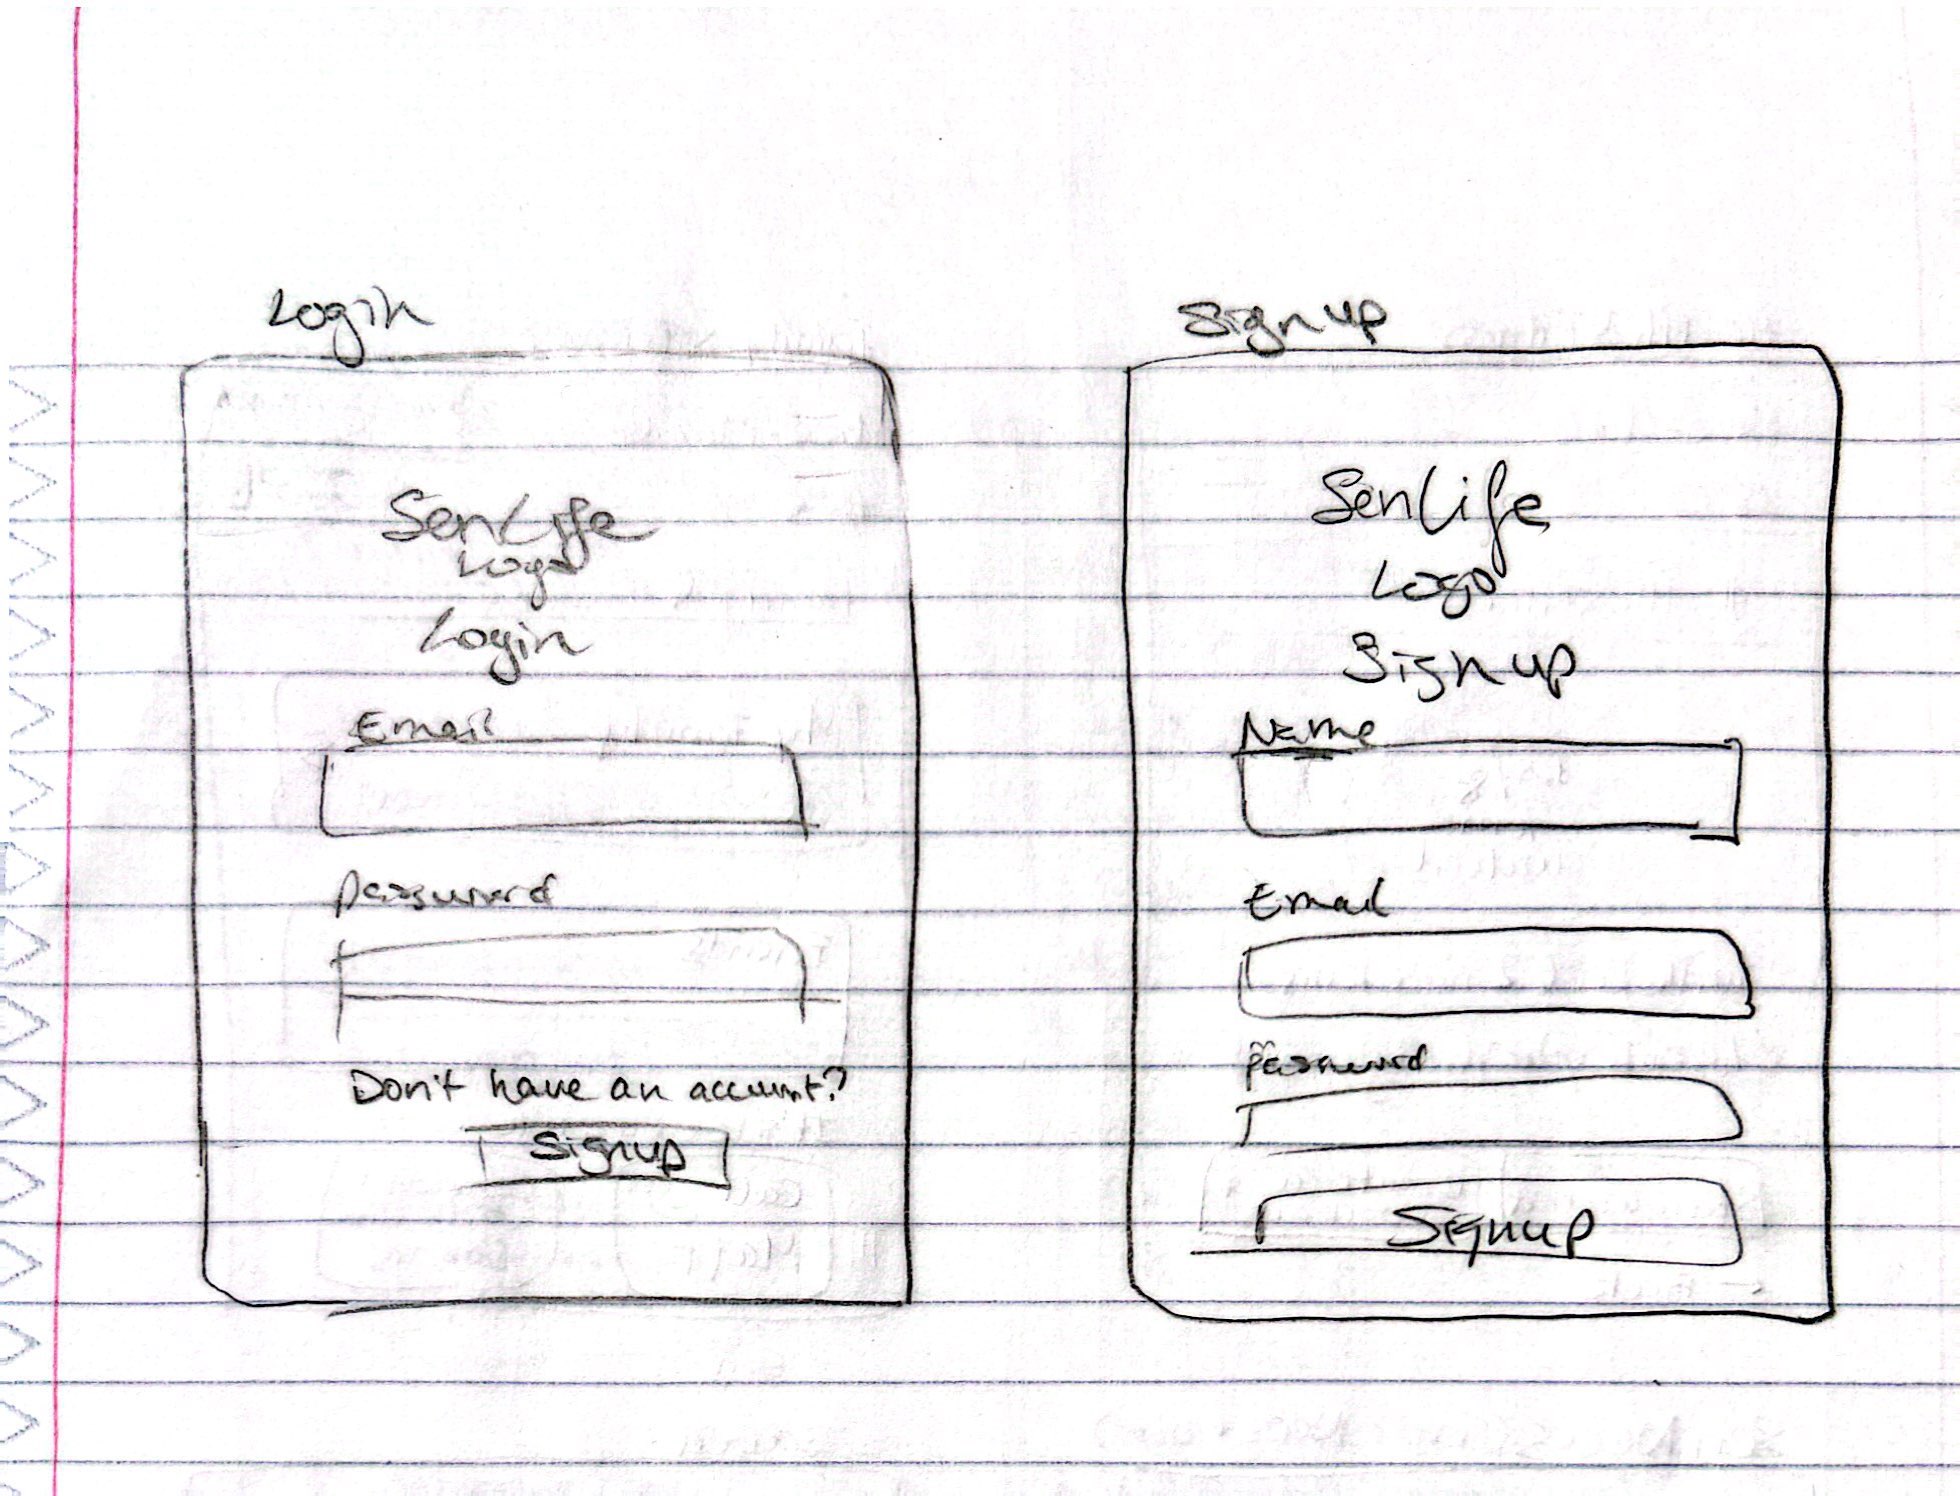 Login
SenLife
Logo
Login
Email
password
Don't have an account?
Signup
Signup
SenLife
Logo
Signup
Name
Email
password
Signup